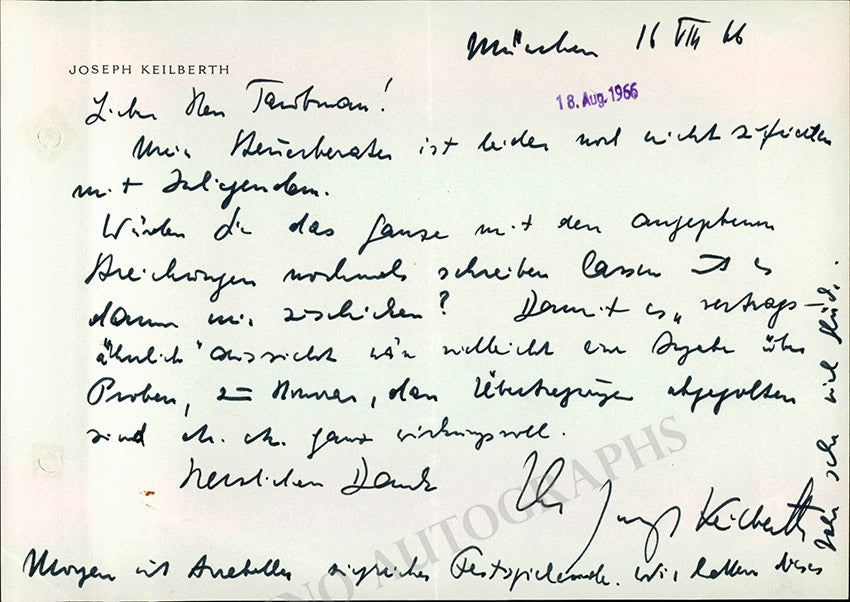 München 16 VIII 66
JOSEPH KEILBERTH
18. Aug. 1966
Lieber Herr Taubman!
Mein Steuerberater ist leider noch nicht zufrieden
mit Inliegendem.
Würden Sie das Ganze mit den angegebenen
Streichungen nochmals schreiben lassen und es
dann mir zuschicken? Damit es „vertrags-
ähnlich" aussieht wär vielleicht eine Angabe über
Proben, Honorar, Übertragungen abgegolten
sind etc. etc. ganz wirkungsvoll.
Herzlichen Dank
Ihr Joseph Keilberth
Morgen mit Arabella Festspielende. Wir hatten dieses
Jahr sehr viel Glück.
NO AUTOGRAPHS